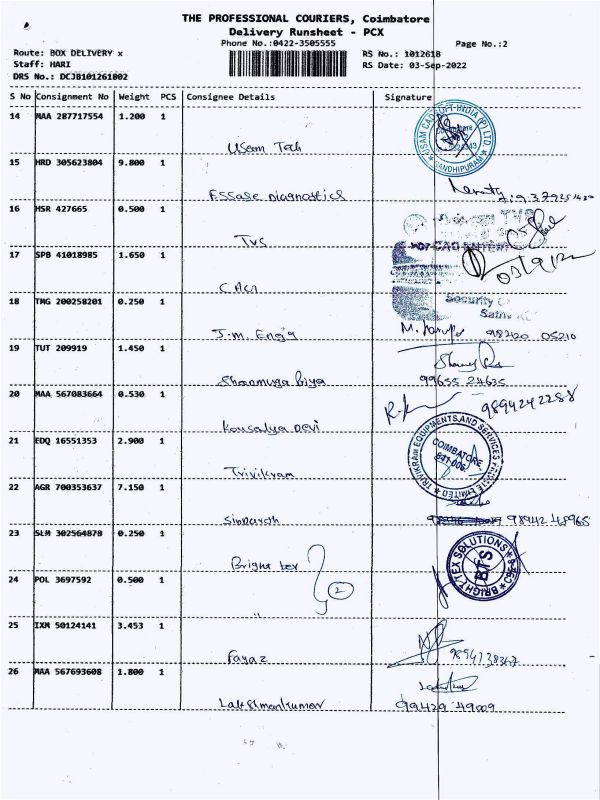 THE PROFESSIONAL COURIERS, Coimbatore
Delivery Runsheet - PCX
Phone No.:0422-3505555
Page No.:2
Route: BOX DELIVERY x
Staff: HARI
DRS No.: DCJB101261802
RS No.: 1012618
RS Date: 03-Sep-2022
S No Consignment No Weight PCS Consignee Details Signature
14 MAA 287717554 1.200 1
Usam Tech
15 HRD 305623804 9.800 1
Essase Diagnostics
16 HSR 427665 0.500 1
TVS
17 SPB 41018985 1.650 1
03/9/22
18 TMG 200258201 0.250 1
Security
J.m. Eng'g 98420 05210
19 TUT 209919 1.450 1
Shanmuga Priya 99655 24635
20 MAA 567083664 0.530 1
9894242288
Kousalya Devi
21 EDQ 16551353 2.900 1
TRIVIKRAM EQUIPMENTS AND SERVICES PRIVATE LIMITED
COIMBATORE
641 006.
Trivikram
22 AGR 700353637 7.150 1
98942 48965
23 SLM 302564878 0.250 1
BRIGHT TEX SOLUTIONS
BTS
CBE
Bright tex
24 POL 3697592 0.500 1
2
"
25 IXM 50124141 3.453 1
Fayaz
26 MAA 567693608 1.800 1
Lakshmankumar
99429 49009